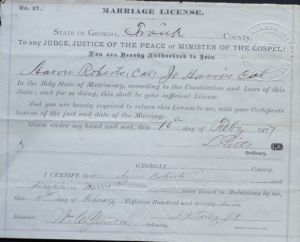 No. 37.
MARRIAGE LICENSE.
STATE OF GEORGIA, Troup COUNTY.
To any JUDGE, JUSTICE OF THE PEACE or MINISTER OF THE GOSPEL:
You are Hereby Authorized to Join
Aaron Roberts, Col & Jo Harris Col
In the Holy State of Matrimony, according to the Constitution and Laws of this
State; and for so doing, this shall be your sufficient License.
And you are hereby required to return this License to me, with your Certificate
hereon of the fact and date of the Marriage.
Given under my hand and seal, this 10th day of Feby 1877
Ordinary.
GEORGIA
County.
I CERTIFY, that Roberts
Harris were joined in Matrimony by me,
this day of February Eighteen Hundred and Seventy Seven
Recorded
Ordinary.